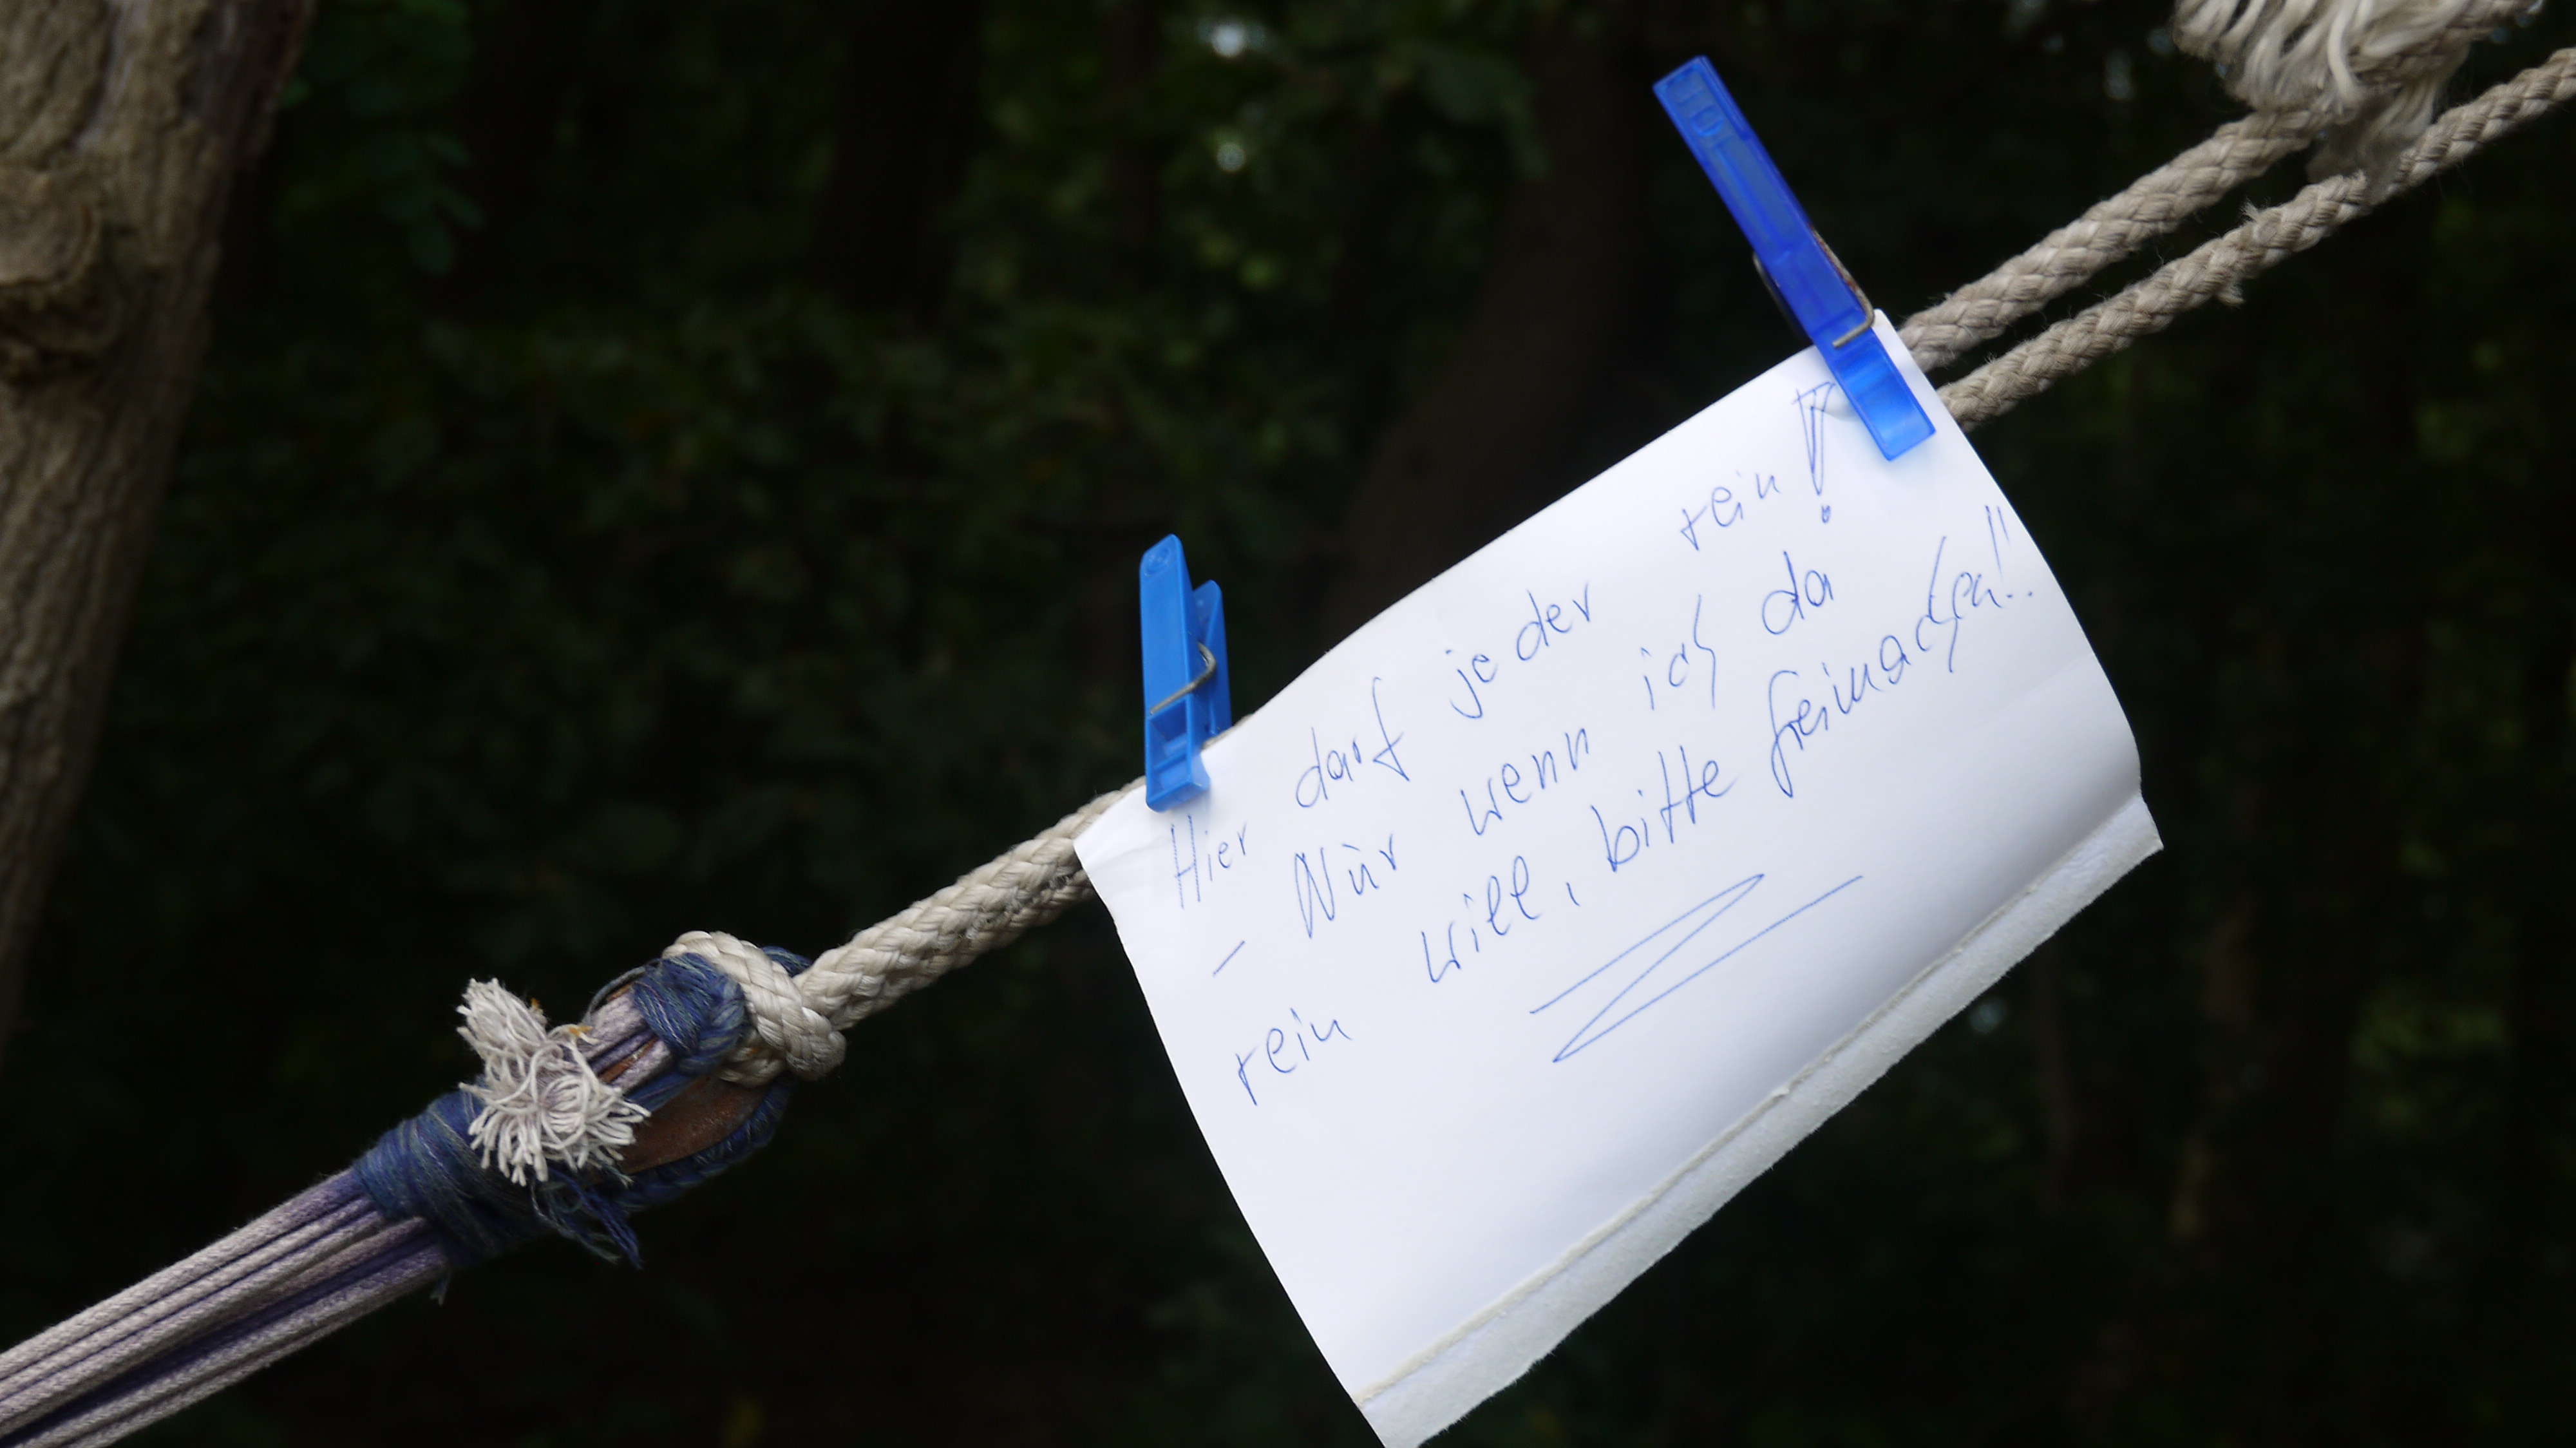 Hier darf jeder rein!
- Nur wenn ich da
rein will, bitte freimachen!!